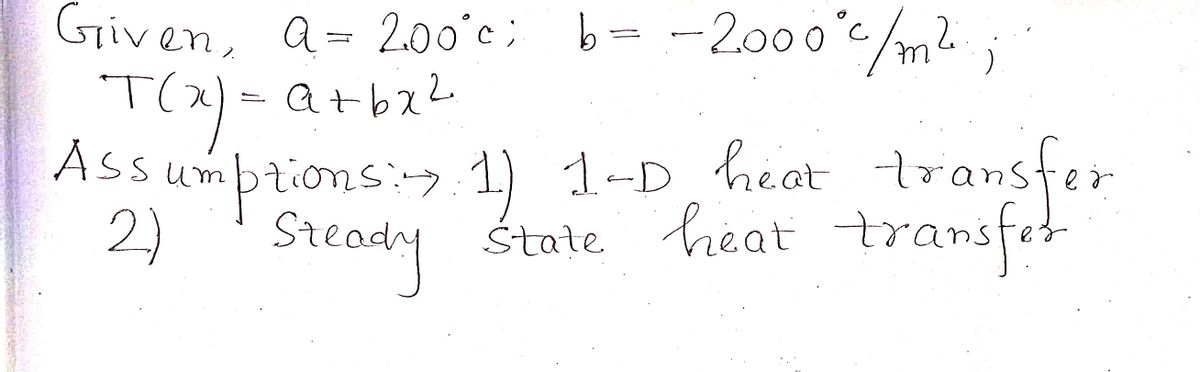 Given, a = 200°c; b = -2000°c/m²;
T(x) = a + bx²
Assumptions:→ 1) 1-D heat transfer
2) Steady state heat transfer